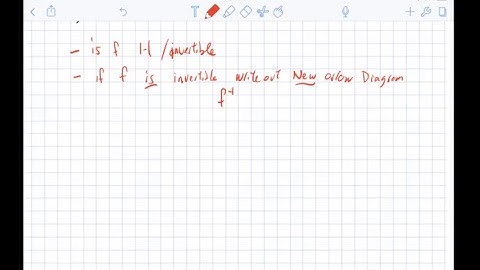 - is f 1-1 / invertible
- if f is invertible write out New arrow Diagram
f⁻¹